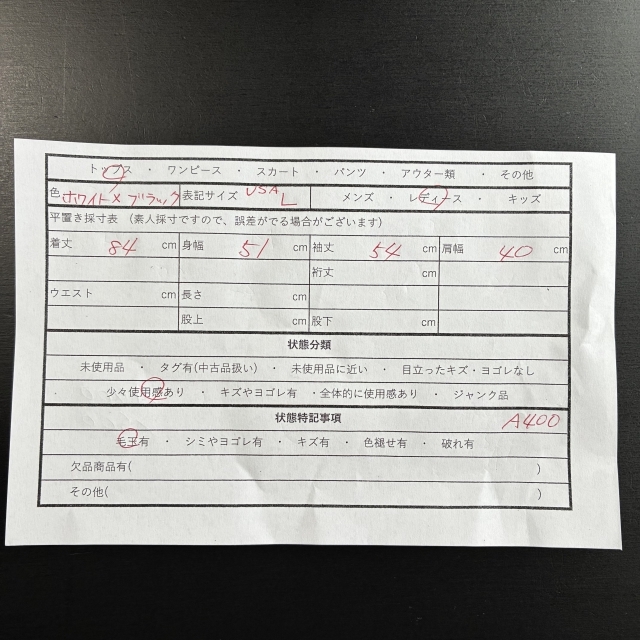 トップス ・ ワンピース ・ スカート ・ パンツ ・ アウター類 ・ その他
色 ホワイト×ブラック 表記サイズ USA L メンズ ・ レディース ・ キッズ
平置き採寸表 (素人採寸ですので、誤差がでる場合がございます)
着丈 84 cm 身幅 51 cm 袖丈 54 cm 肩幅 40 cm
裄丈 cm
ウエスト cm 長さ cm
股上 cm 股下 cm
状態分類
未使用品 ・ タグ有(中古品扱い) ・ 未使用品に近い ・ 目立ったキズ・ヨゴレなし
少々使用感あり ・ キズやヨゴレ有 ・全体的に使用感あり ・ ジャンク品
状態特記事項 A400
毛玉有 ・ シミやヨゴレ有 ・ キズ有 ・ 色褪せ有 ・ 破れ有
欠品商品有( )
その他( )